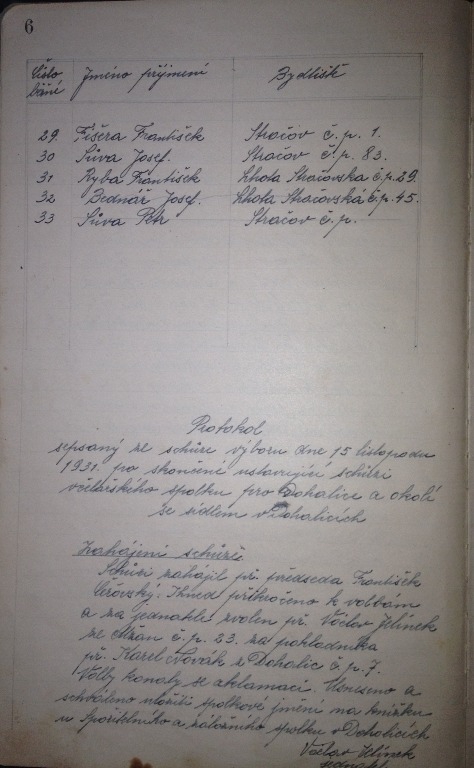 6
Číslo Jméno příjmení Bydliště
běžní
29 Fišera František Stračov č. p. 1.
30 Sůva Josef. Stračov č. p. 83.
31 Ryba František Lhota Stračovská č. p. 29.
32 Bednář Josef. Lhota Stračovská č. p. 45.
33 Sůva Petr Stračov č. p.
Protokol
sepsaný ze schůze výboru dne 15 listopadu
1931. po skončení ustavující schůzi
včelařského spolku pro Dohalice a okolí
se sídlem v Dohalicích
Zahájení schůze
Schůzi zahájil př. předseda František
Ihned přikročeno k volbám
a za jednatele zvolen př. Václav Jelínek
ze Mžan č. p. 23. za pokladníka
př. Karel Novák z Dohalic č. p. 7.
Volby konaly se aklamací. Usneseno a
schváleno uložiti spolkové jmění na knížku
u Spořitelního a záložního spolku v Dohalicích
Václav Jelínek
jednatel